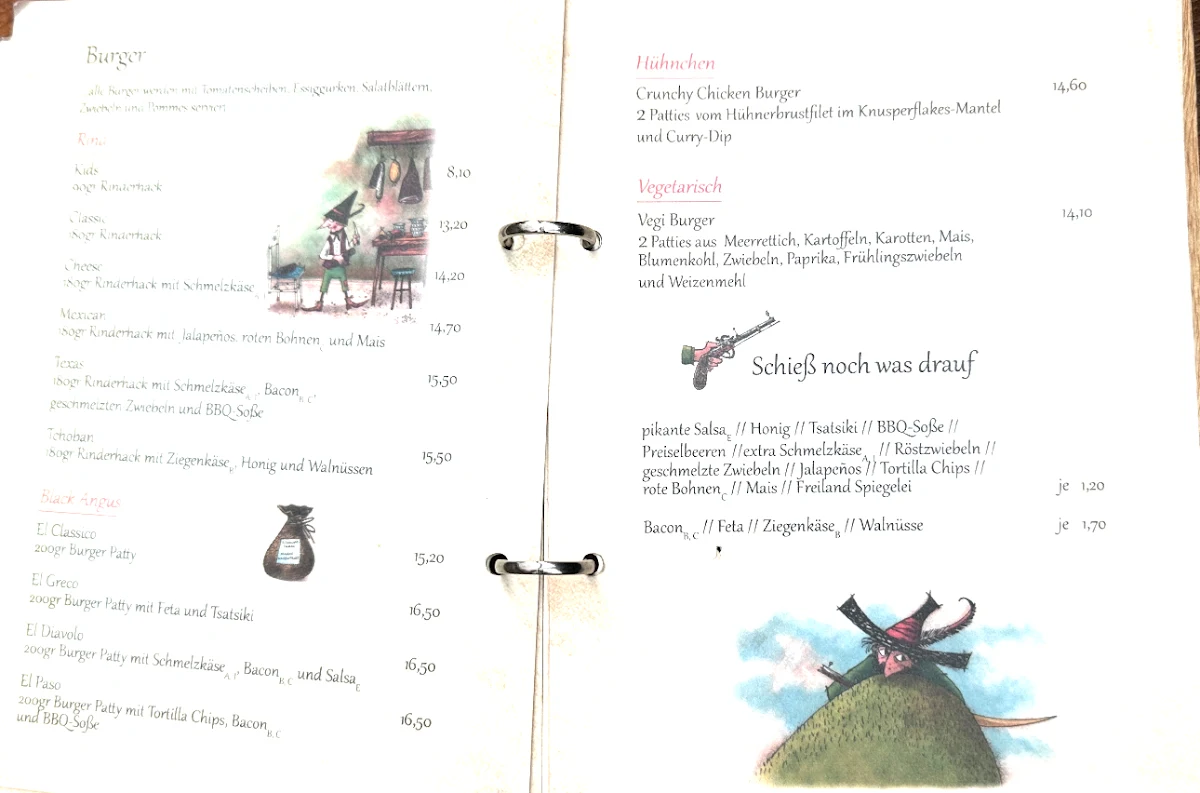 Burger
alle Burger werden mit Tomatenscheiben, Essiggurken, Salatblättern,
Zwiebeln und Pommes serviert
Rind
Kids 8,10
90gr Rinderhack
Classic 13,20
180gr Rinderhack
Cheese 14,20
180gr Rinderhack mit Schmelzkäse
Mexican 14,70
180gr Rinderhack mit Jalapeños, roten Bohnen C und Mais
Texas 15,50
180gr Rinderhack mit Schmelzkäse A, I, Bacon B, C,
geschmelzten Zwiebeln und BBQ-Soße
Tchoban 15,50
180gr Rinderhack mit Ziegenkäse B, Honig und Walnüssen
Black Angus
El Classico 15,20
200gr Burger Patty
El Greco 16,50
200gr Burger Patty mit Feta und Tsatsiki
El Diavolo 16,50
200gr Burger Patty mit Schmelzkäse A, I, Bacon B, C und Salsa E
El Paso 16,50
200gr Burger Patty mit Tortilla Chips, Bacon B, C
und BBQ-Soße
Hühnchen
Crunchy Chicken Burger 14,60
2 Patties vom Hühnerbrustfilet im Knusperflakes-Mantel
und Curry-Dip
Vegetarisch
Vegi Burger 14,10
2 Patties aus Meerrettich, Kartoffeln, Karotten, Mais,
Blumenkohl, Zwiebeln, Paprika, Frühlingszwiebeln
und Weizenmehl
Schieß noch was drauf
pikante Salsa E // Honig // Tsatsiki // BBQ-Soße //
Preiselbeeren //extra Schmelzkäse A, I // Röstzwiebeln //
geschmelzte Zwiebeln // Jalapeños // Tortilla Chips //
rote Bohnen C // Mais // Freiland Spiegelei je 1,20
Bacon B, C // Feta // Ziegenkäse B // Walnüsse je 1,70